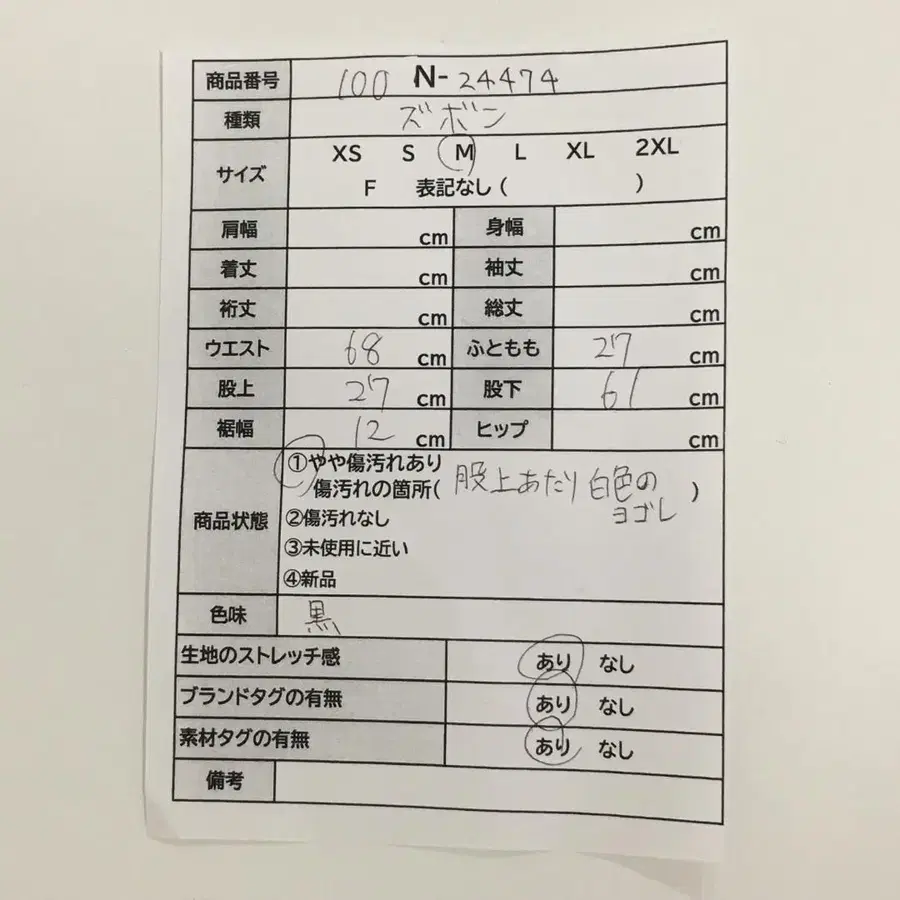 商品番号 100 N-24474
種類 ズボン
サイズ XS S M L XL 2XL
F 表記なし( )
肩幅 cm 身幅 cm
着丈 cm 袖丈 cm
裄丈 cm 総丈 cm
ウエスト 68 cm ふともも 27 cm
股上 27 cm 股下 61 cm
裾幅 12 cm ヒップ cm
商品状態 ①やや傷汚れあり
傷汚れの箇所( 股上あたり 白色の
ヨゴレ )
②傷汚れなし
③未使用に近い
④新品
色味 黒
生地のストレッチ感 あり なし
ブランドタグの有無 あり なし
素材タグの有無 あり なし
備考